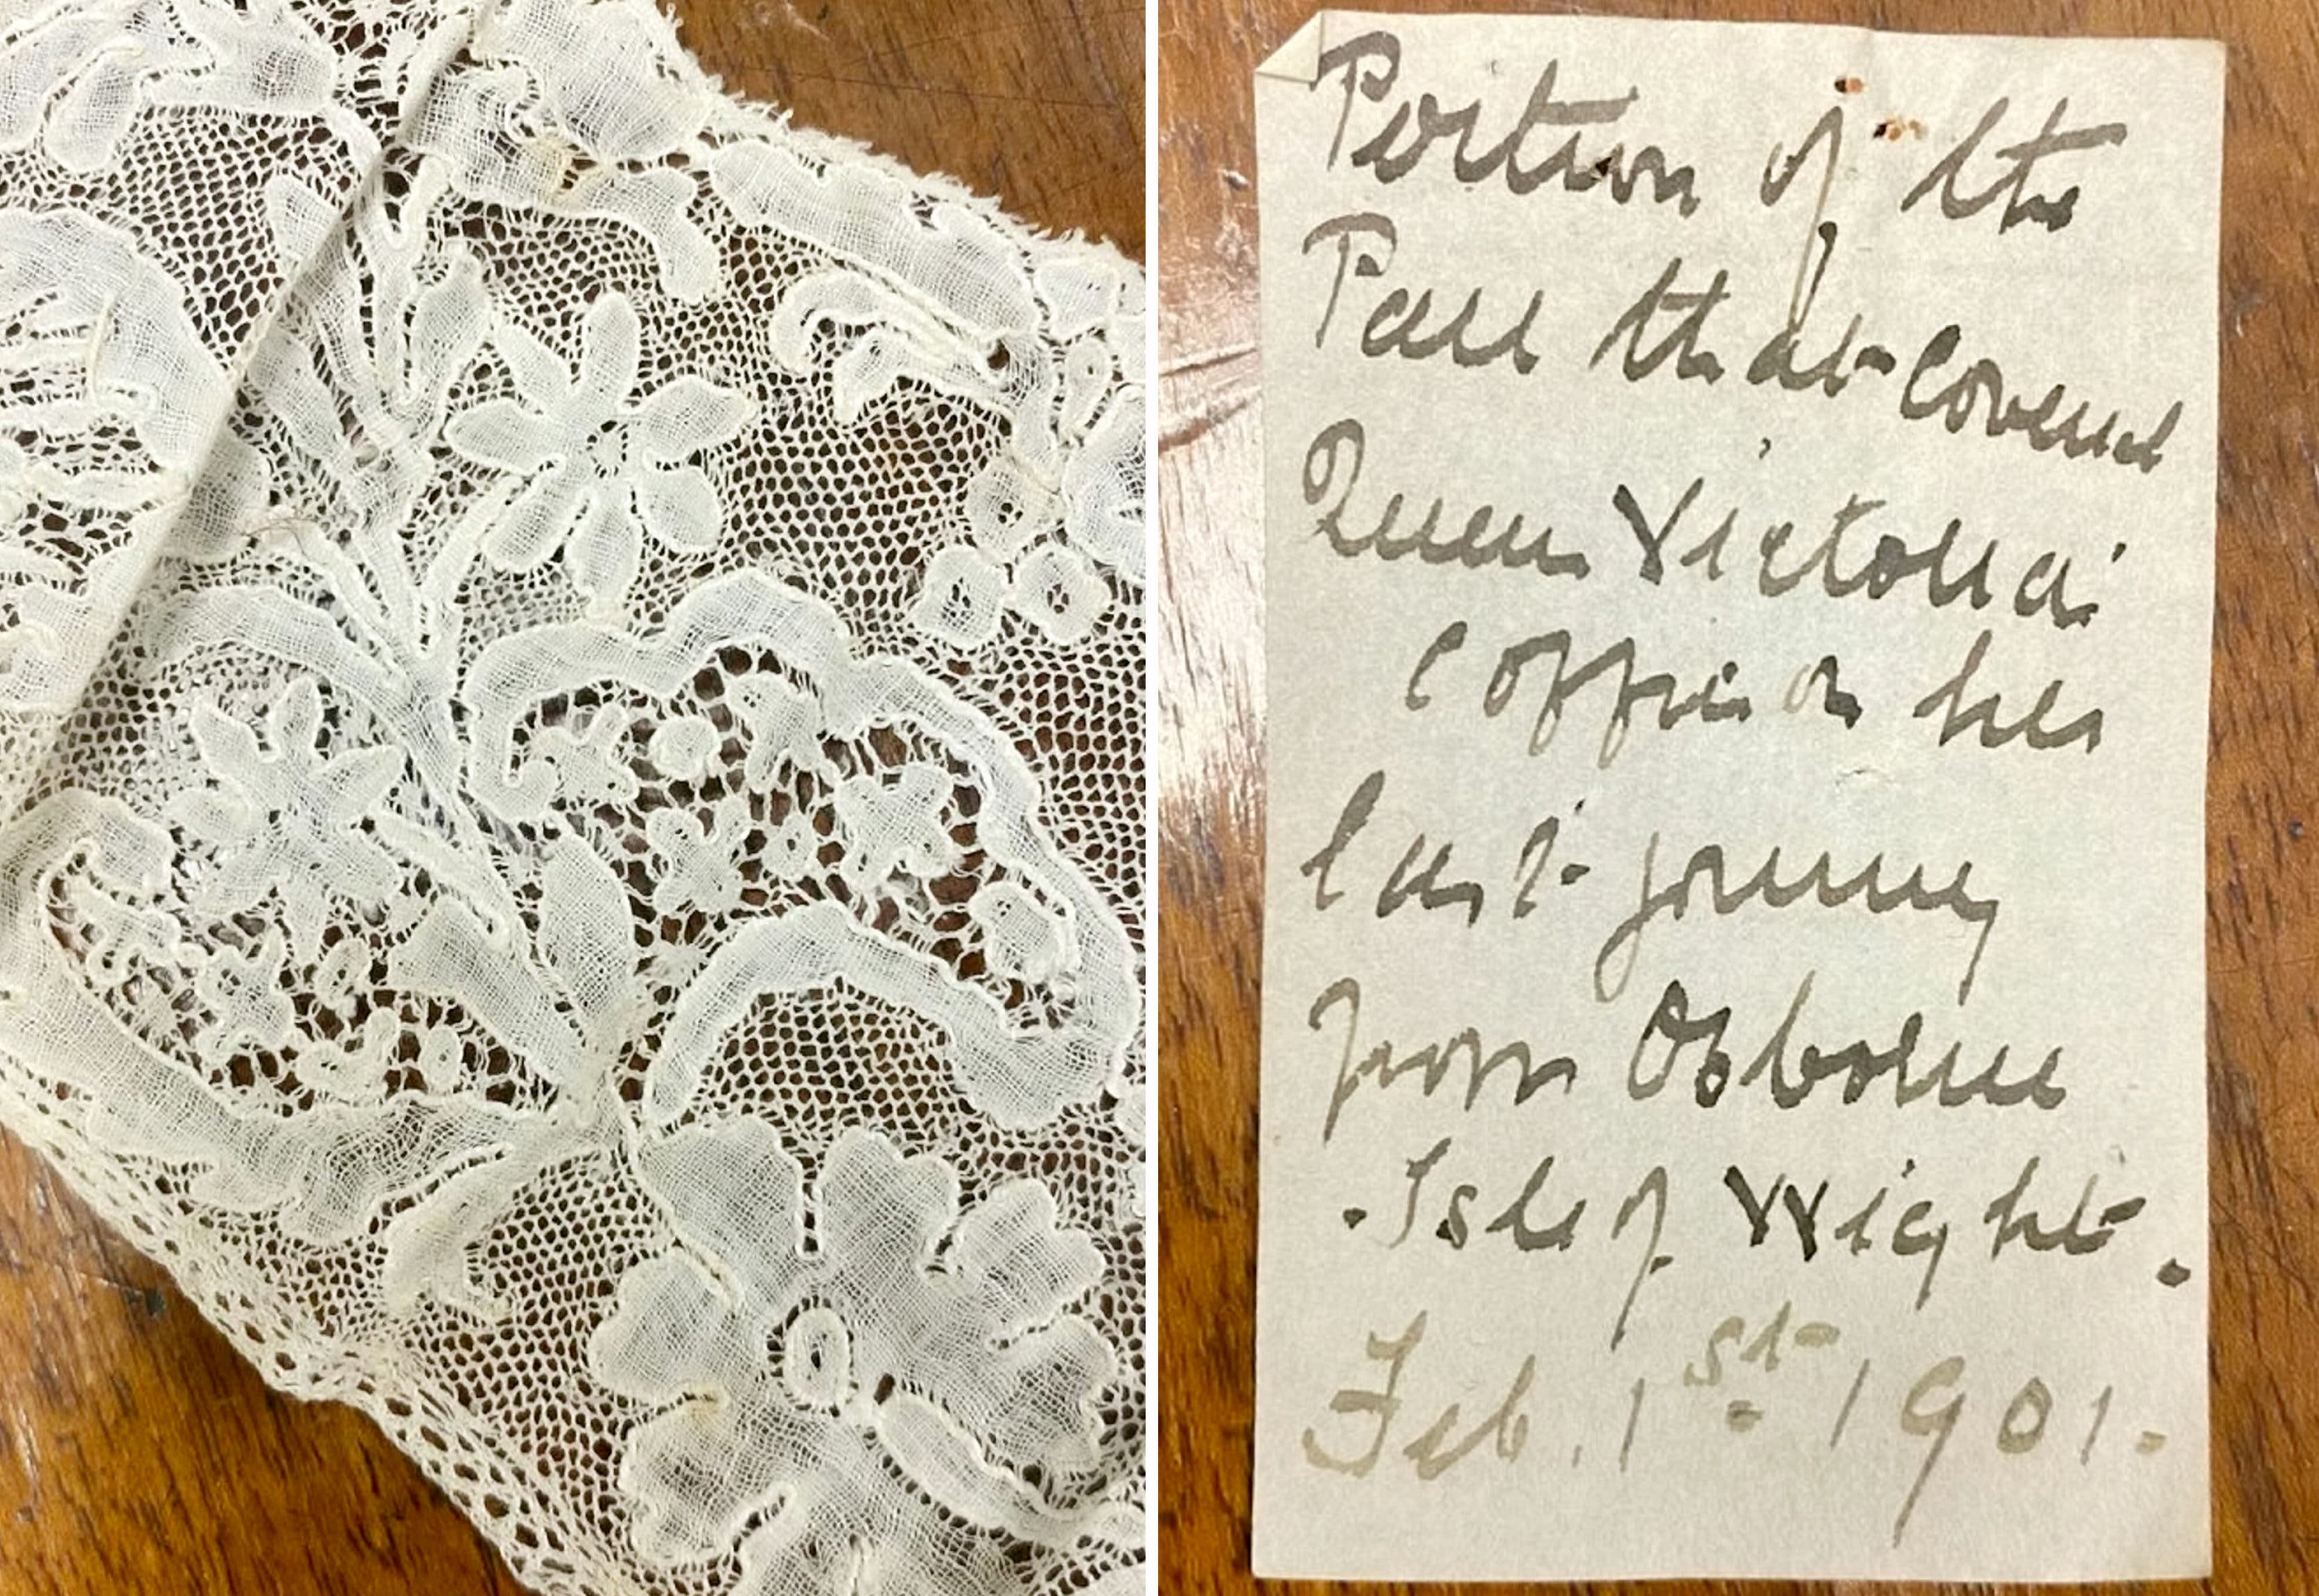 Portion of the
Pall that covered
Queen Victoria'
Coffin on her
last journey
from Osborne
. Isle of Wight.
Feb. 1st 1901.